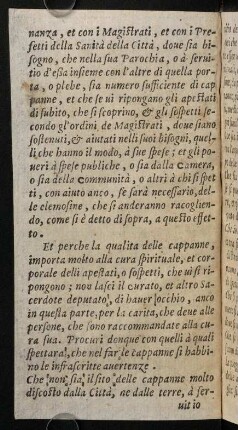 nanza, et con i Magistrati, et con i Pre-
fetti della Sanità della Città, doue sia bi-
sogno, che nella sua Parochia, o à serui-
tio d'essa insieme con l'altre di quella por-
ta, o plebe, sia numero sufficiente di cap
panne, et che se ui ripongano gli apestati
di subito, che si scoprino, & gli sospetti se-
condo gl'ordini de Magistrati, doue siano
sostenuti, & aiutati nelli suoi bisogni, quel-
li, che hanno il modo, à sue spese; et gli po-
ueri à spese publiche, o sia dalla Camera,
o sia della Communità, o altri à chi si spet
ti, con aiuto anco, se sarà necessario, del-
le elemosine, che si anderanno racoglien-
do, come si è detto di sopra, a questo effet-
to.
Et perche la qualita delle cappanne,
importa molto alla cura spirituale, et cor-
porale delli apestati, o sospetti, che ui si ri-
pongono; non lasci il Curato, et altro Sa-
cerdote deputato, di hauer l'occhio, anco
in questa parte, per la carita, che deue alle
persone, che sono raccommandate alla cu-
ra sua. Procuri donque con quelli à quali
spettara, che nel far le cappanne si habbi-
no le infrascritte auertenze.
Che non sia il sito delle cappanne molto
discosto dalla Città, ne dalle terre, à ser-
uitio